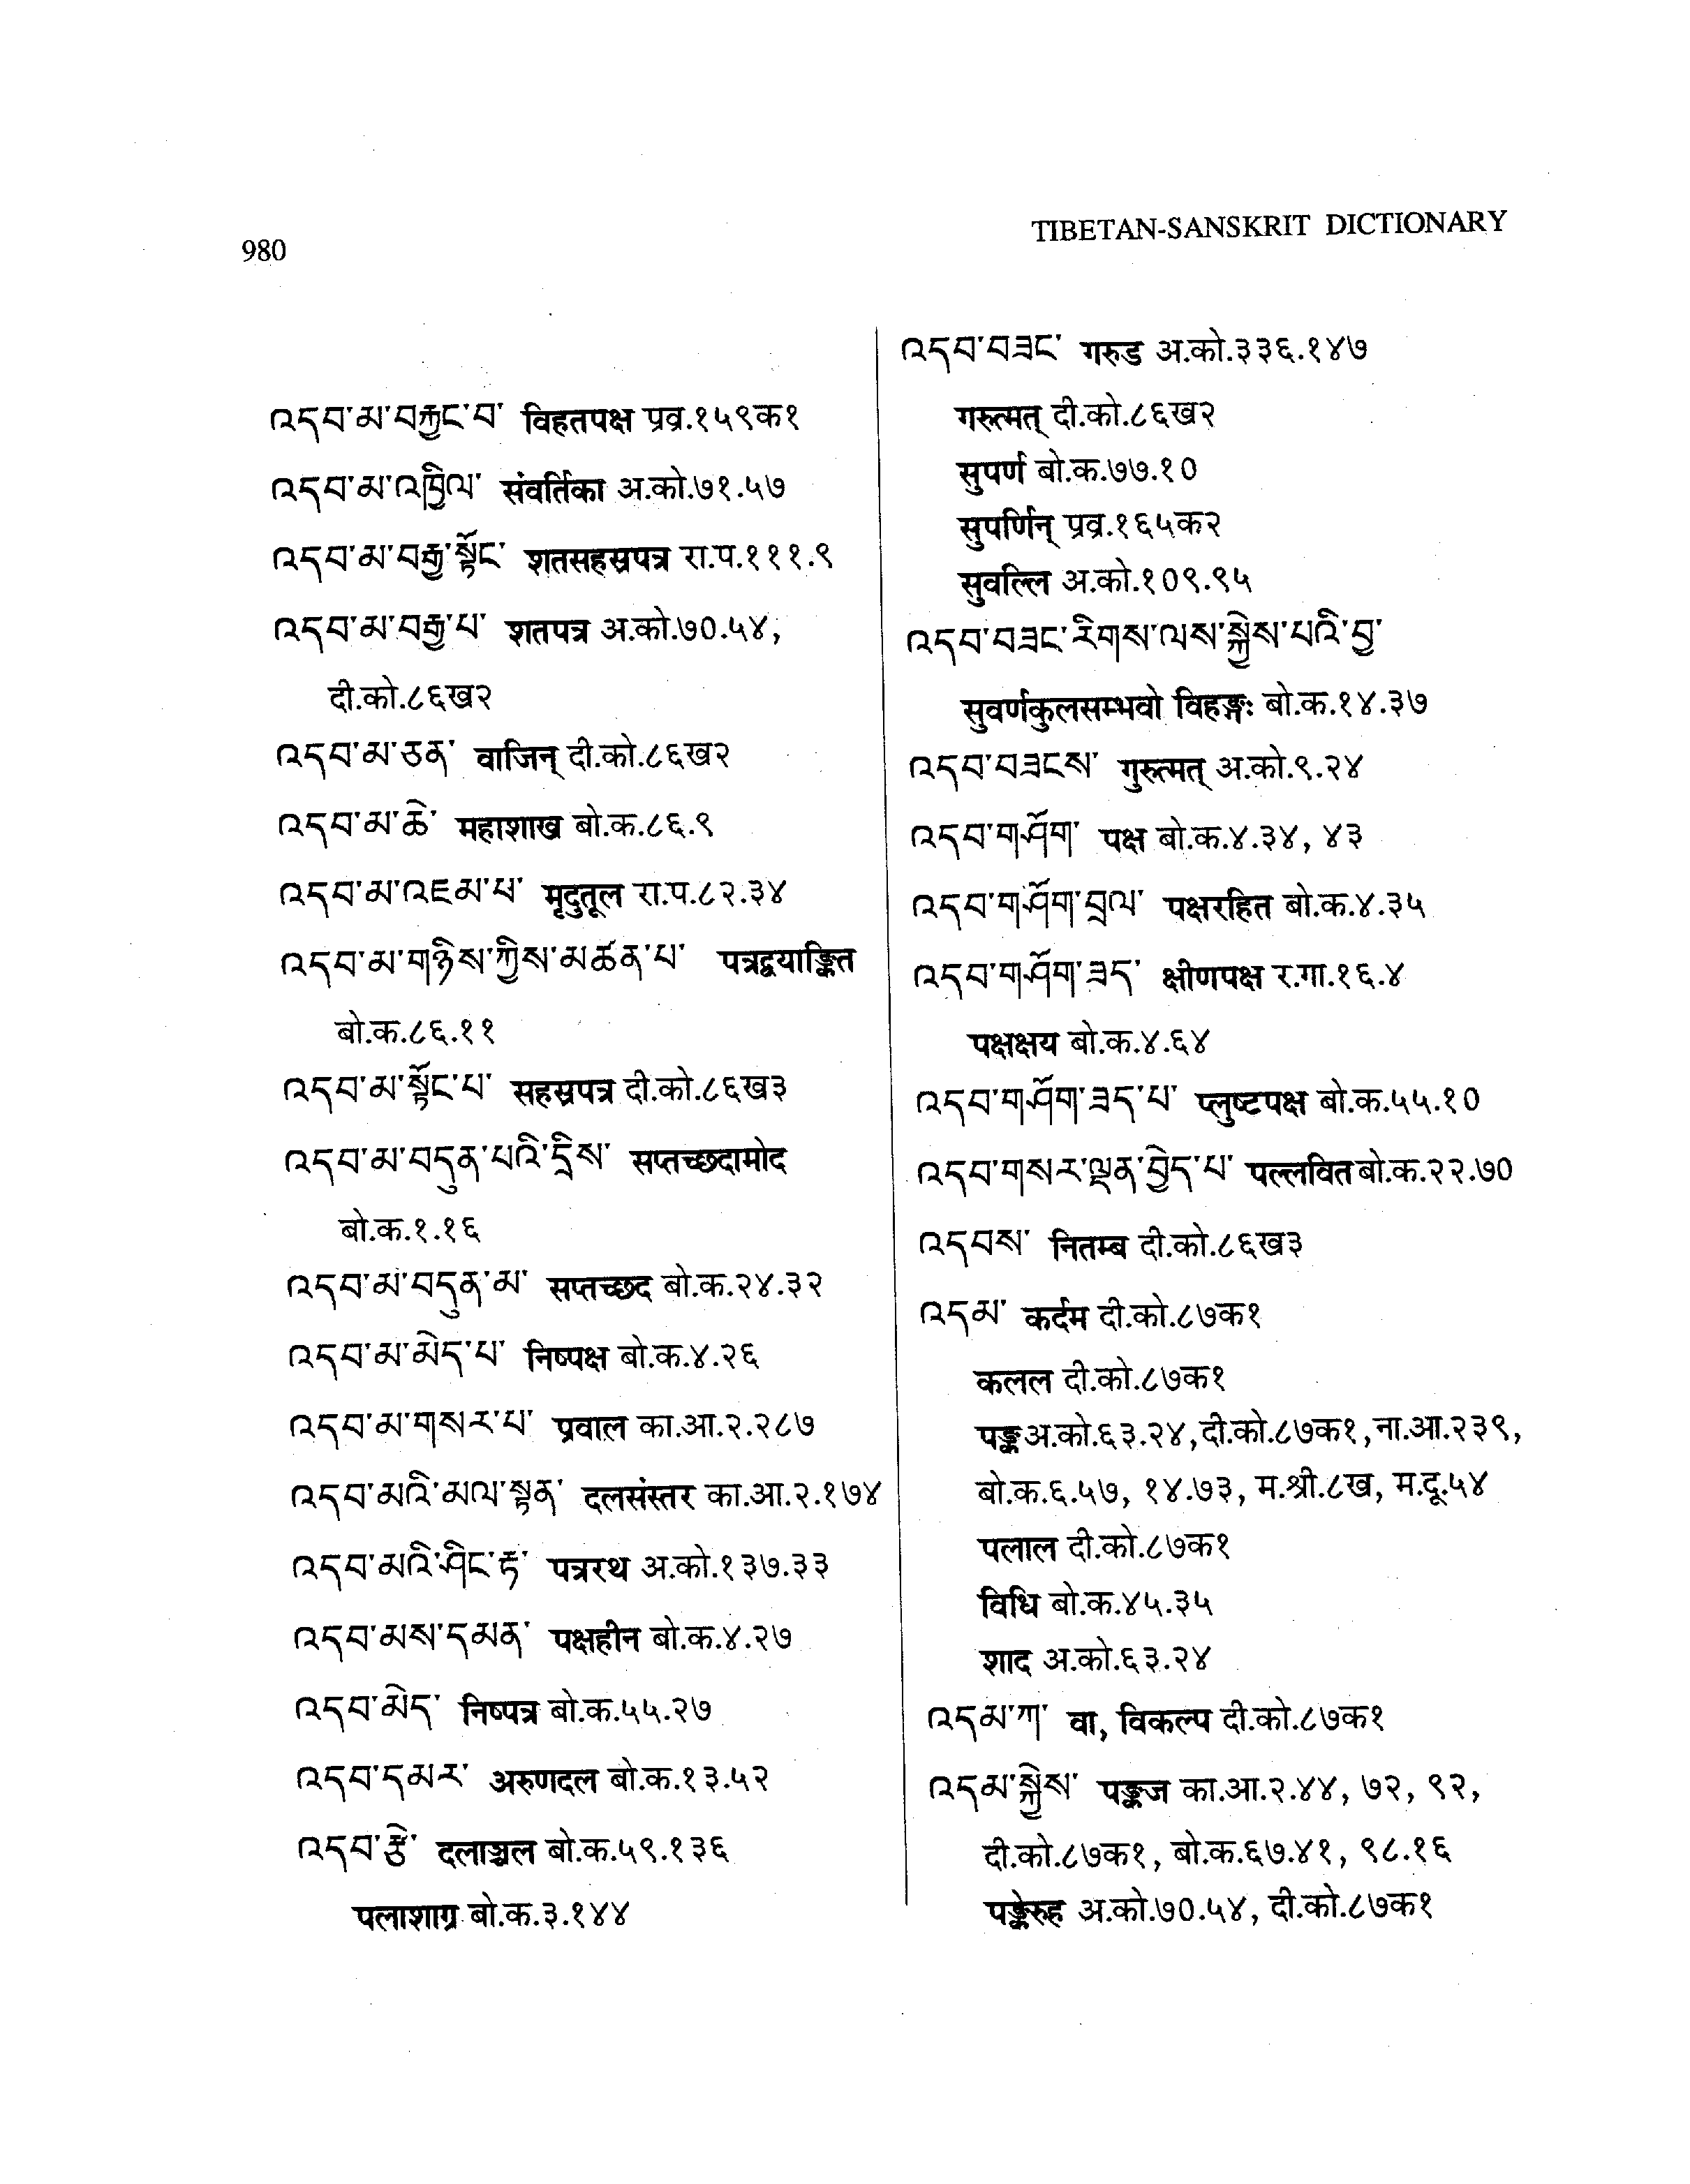 980
TIBETAN-SANSKRIT DICTIONARY
འདབ་མ་བརྐྱང་བ་ विहतपक्ष प्रव्र.१५९क१
འདབ་མ་འཁྱིལ་ संवर्तिका अ.को.७१.५७
འདབ་མ་བརྒྱ་སྟོང་ शतसहस्रपत्र रा.प.१११.९
འདབ་མ་བརྒྱ་པ་ शतपत्र अ.को.७०.५४,
दी.को.८६ख२
འདབ་མ་ཅན་ वाजिन् दी.को.८६ख२
འདབ་མ་ཆེ་ महाशाख बो.क.८६.९
འདབ་མ་འཇམ་པ་ मृदुतूल रा.प.८२.३४
འདབ་མ་གཉིས་ཀྱིས་མཚན་པ་ पत्रद्वयाङ्कित
बो.क.८६.११
འདབ་མ་སྟོང་པ་ सहस्रपत्र दी.को.८६ख३
འདབ་མ་བདུན་པའི་དྲིས་ सप्तच्छदामोद
बो.क.१.१६
འདབ་མ་བདུན་མ་ सप्तच्छद बो.क.२४.३२
འདབ་མ་མེད་པ་ निष्पक्ष बो.क.४.२६
འདབ་མ་གསར་པ་ प्रवाल का.आ.२.२८७
འདབ་མའི་མལ་སྟན་ दलसंस्तर का.आ.२.१७४
འདབ་མའི་ཤིང་རྟ་ पत्ररथ अ.को.१३७.३३
འདབ་མས་དམན་ पक्षहीन बो.क.४.२७
འདབ་མེད་ निष्पत्र बो.क.५५.२७
འདབ་དམར་ अरुणदल बो.क.१३.५२
འདབ་རྩེ་ दलाञ्चल बो.क.५९.१३६
पलाशाग्र बो.क.३.१४४
འདབ་བཟང་ गरुड अ.को.३३६.१४७
गरुत्मत् दी.को.८६ख२
सुपर्ण बो.क.७७.१०
सुपर्णिन् प्रव्र.१६५क२
सुवल्लि अ.को.१०९.९५
འདབ་བཟང་རིགས་ལས་སྐྱེས་པའི་བྱ་
सुवर्णकुलसम्भवो विहङ्गः बो.क.१४.३७
འདབ་བཟངས་ गुरुत्मत् अ.को.९.२४
འདབ་གཤོག་ पक्ष बो.क.४.३४, ४३
འདབ་གཤོག་བྲལ་ पक्षरहित बो.क.४.३५
འདབ་གཤོག་ཟད་ क्षीणपक्ष र.गा.१६.४
पक्षक्षय बो.क.४.६४
འདབ་གཤོག་ཟད་པ་ प्लुष्टपक्ष बो.क.५५.१०
འདབ་གསར་ལྡན་བྱེད་པ་ पल्लवित बो.क.२२.७०
འདབས་ नितम्ब दी.को.८६ख३
འདམ་ कर्दम दी.को.८७क१
कलल दी.को.८७क१
पङ्क अ.को.६३.२४, दी.को.८७क१, ना.आ.२३९,
बो.क.६.५७, १४.७३, म.श्री.८ख, म.दू.५४
पलाल दी.को.८७क१
विधि बो.क.४५.३५
शाद अ.को.६३.२४
འདམ་ཀ་ वा, विकल्प दी.को.८७क१
འདམ་སྐྱེས་ पङ्कज का.आ.२.४४, ७२, ९२,
दी.को.८७क१, बो.क.६७.४१, ९८.१६
पङ्केरुह अ.को.७०.५४, दी.को.८७क१